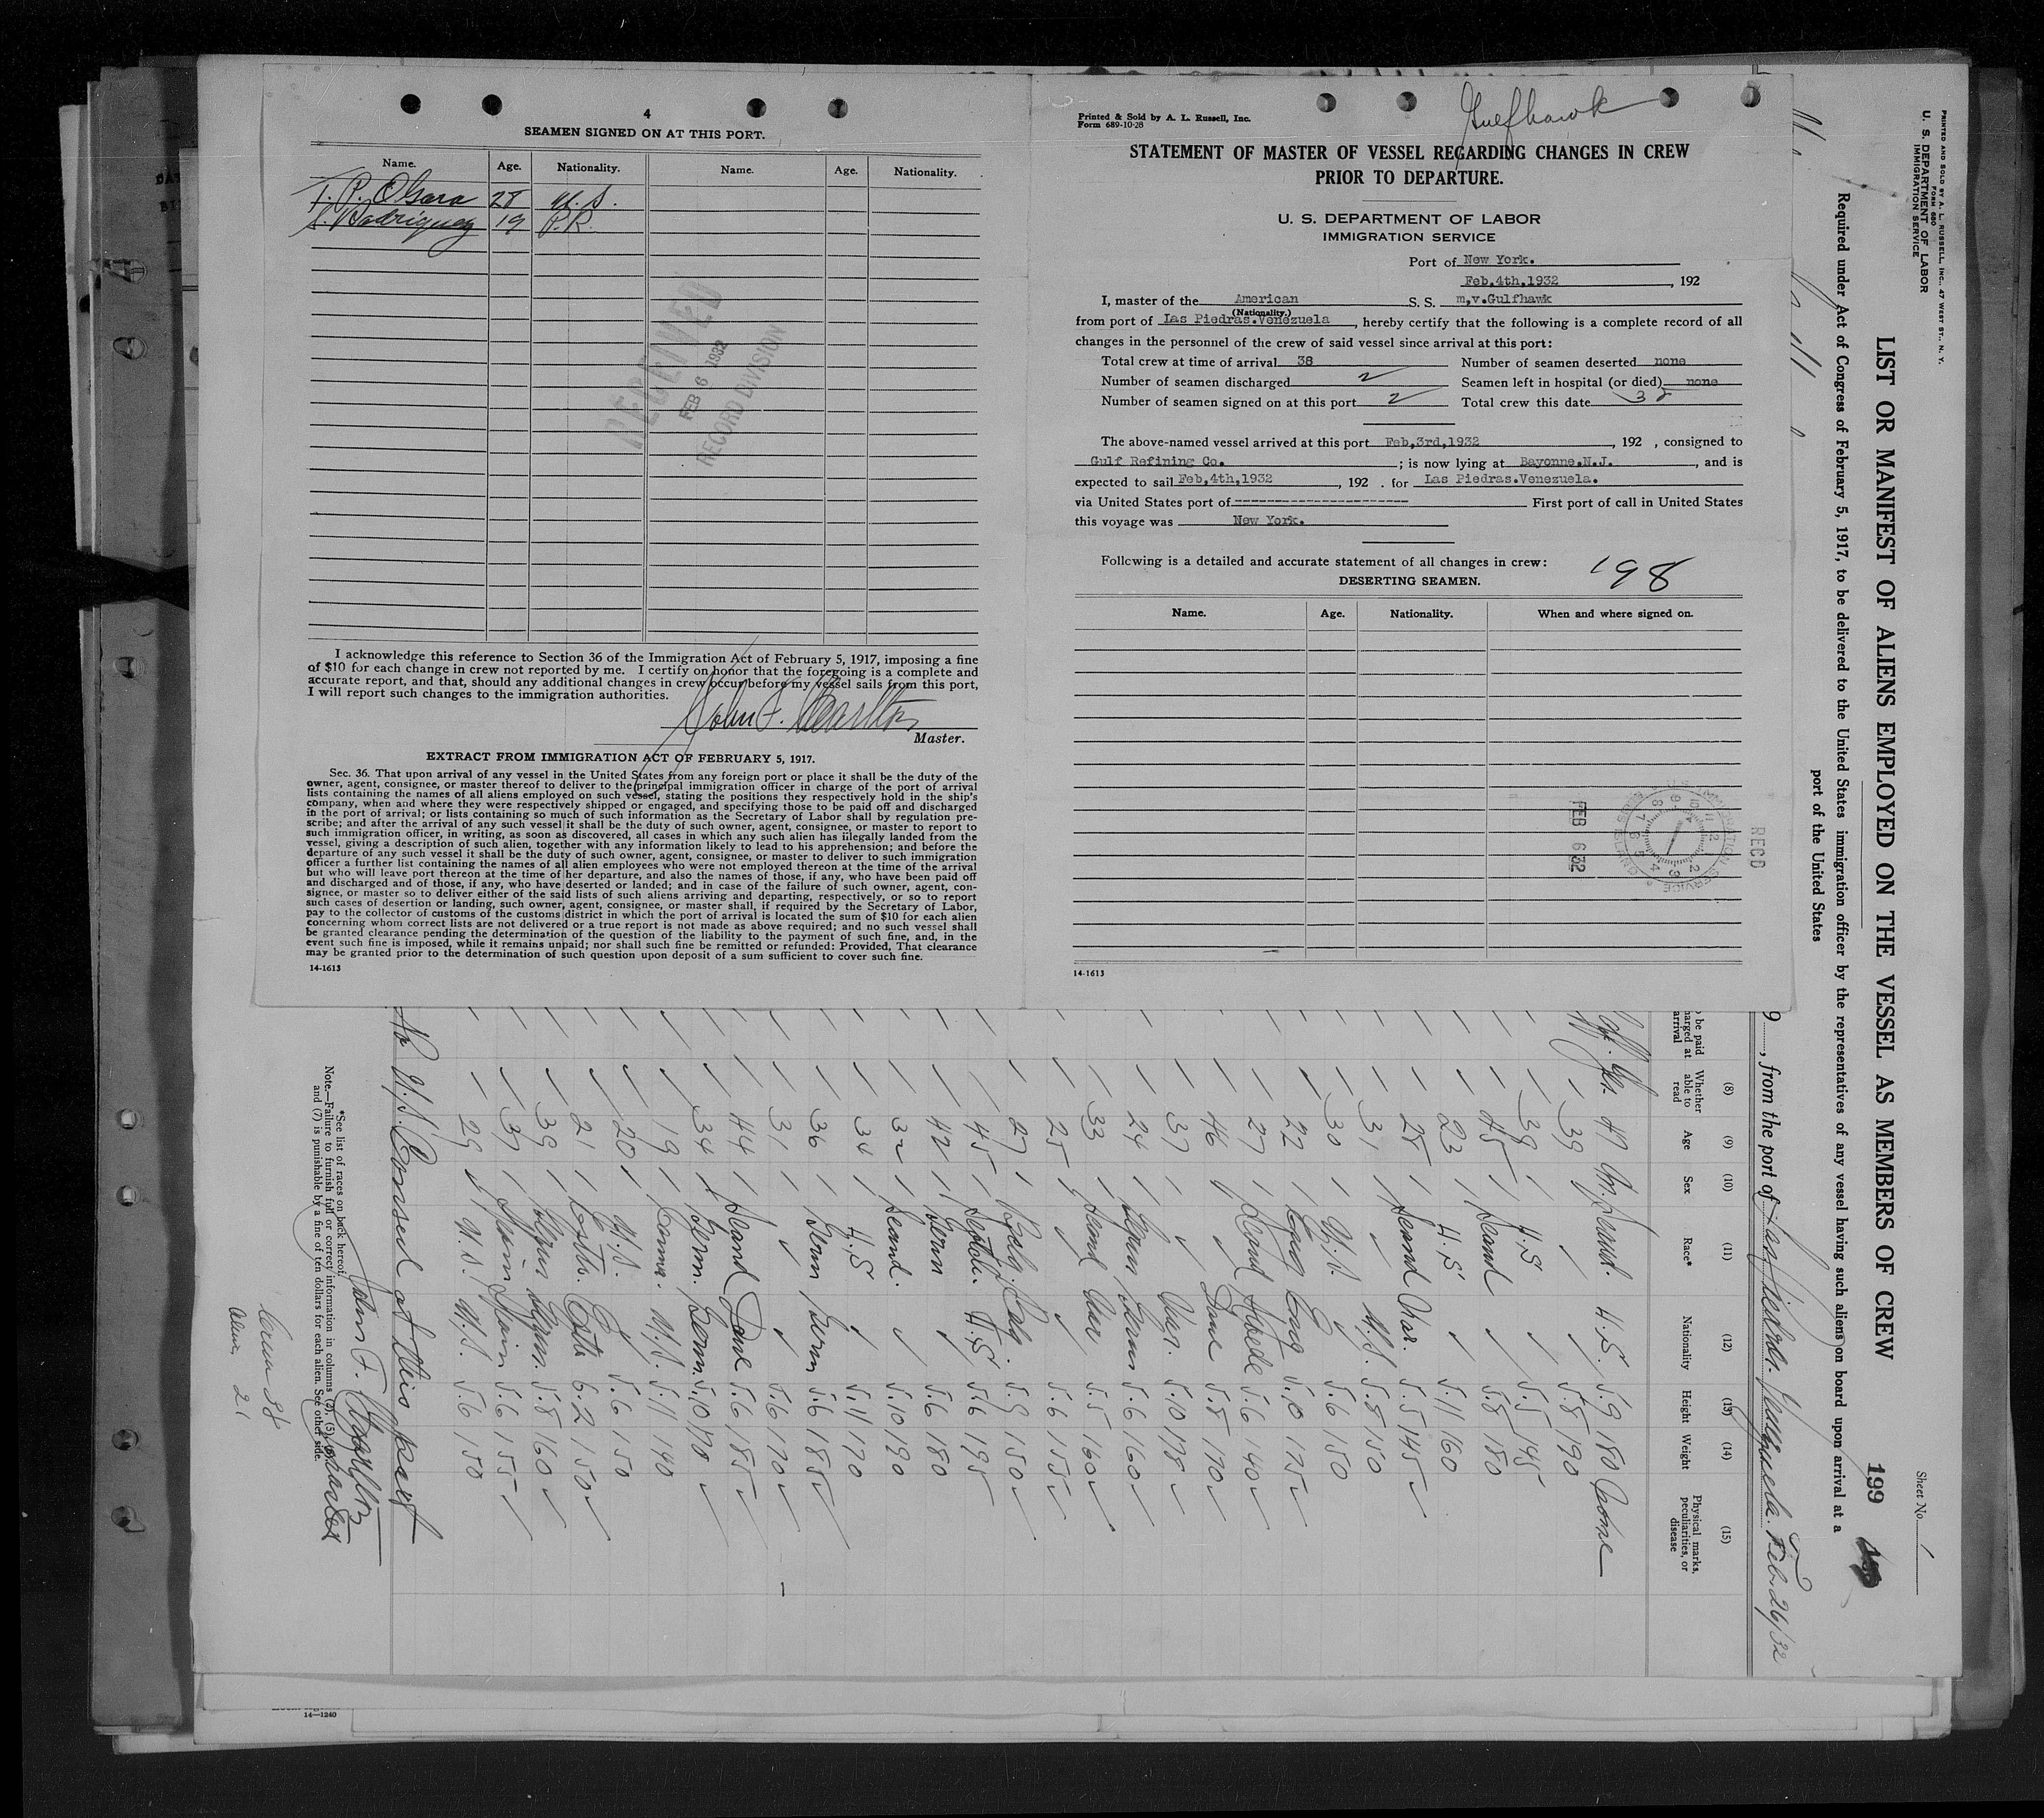 4
SEAMEN SIGNED ON AT THIS PORT.
Name. Age. Nationality. Name. Age. Nationality.
T. P. O'Gara 28 U. S.
Rodriguez 19 P.R.
RECEIVED
FEB 6 1932
RECORD DIVISION
I acknowledge this reference to Section 36 of the Immigration Act of February 5, 1917, imposing a fine
of $10 for each change in crew not reported by me. I certify on honor that the foregoing is a complete and
accurate report, and that, should any additional changes in crew occur before my vessel sails from this port,
I will report such changes to the immigration authorities.
John F. Charlton
Master.
EXTRACT FROM IMMIGRATION ACT OF FEBRUARY 5, 1917.
Sec. 36. That upon arrival of any vessel in the United States from any foreign port or place it shall be the duty of the
owner, agent, consignee, or master thereof to deliver to the principal immigration officer in charge of the port of arrival
lists containing the names of all aliens employed on such vessel, stating the positions they respectively hold in the ship's
company, when and where they were respectively shipped or engaged, and specifying those to be paid off and discharged
in the port of arrival; or lists containing so much of such information as the Secretary of Labor shall by regulation pre-
scribe; and after the arrival of any such vessel it shall be the duty of such owner, agent, consignee, or master to report to
such immigration officer, in writing, as soon as discovered, all cases in which any such alien has illegally landed from the
vessel, giving a description of such alien, together with any information likely to lead to his apprehension; and before the
departure of any such vessel it shall be the duty of such owner, agent, consignee, or master to deliver to such immigration
officer a further list containing the names of all alien employees who were not employed thereon at the time of the arrival
but who will leave port thereon at the time of her departure, and also the names of those, if any, who have been paid off
and discharged and of those, if any, who have deserted or landed; and in case of the failure of such owner, agent, con-
signee, or master so to deliver either of the said lists of such aliens arriving and departing, respectively, or so to report
such cases of desertion or landing, such owner, agent, consignee, or master shall, if required by the Secretary of Labor,
pay to the collector of customs of the customs district in which the port of arrival is located the sum of $10 for each alien
concerning whom correct lists are not delivered or a true report is not made as above required; and no such vessel shall
be granted clearance pending the determination of the question of the liability to the payment of such fine, and, in the
event such fine is imposed, while it remains unpaid; nor shall such fine be remitted or refunded: Provided, That clearance
may be granted prior to the determination of such question upon deposit of a sum sufficient to cover such fine.
14-1613
Gulfhawk
Printed & Sold by A. L. Russell, Inc.
Form 689-10-28
STATEMENT OF MASTER OF VESSEL REGARDING CHANGES IN CREW
PRIOR TO DEPARTURE.
U. S. DEPARTMENT OF LABOR
IMMIGRATION SERVICE
Port of New York.
Feb,4th,1932, 192
I, master of the American S. S. m,v.Gulfhawk
(Nationality.)
from port of Las Piedras.Venezuela, hereby certify that the following is a complete record of all
changes in the personnel of the crew of said vessel since arrival at this port:
Total crew at time of arrival 38 Number of seamen deserted none
Number of seamen discharged 2 Seamen left in hospital (or died) none
Number of seamen signed on at this port 2 Total crew this date 38
The above-named vessel arrived at this port Feb,3rd,1932, 192 , consigned to
Gulf Refining Co. ; is now lying at Bayonne.N.J. , and is
expected to sail Feb,4th,1932, 192 . for Las Piedras.Venezuela.
via United States port of -------------------- First port of call in United States
this voyage was New York.
Following is a detailed and accurate statement of all changes in crew:
198
DESERTING SEAMEN.
Name. Age. Nationality. When and where signed on.
REC'D
FEB 6 32
14-1613
PRINTED AND SOLD BY A. L. RUSSELL, INC., 47 WEST ST., N. Y.
FORM 680
U. S. DEPARTMENT OF LABOR
IMMIGRATION SERVICE
Sheet No. 1
LIST OR MANIFEST OF ALIENS EMPLOYED ON THE VESSEL AS MEMBERS OF CREW
199
Required under Act of Congress of February 5, 1917, to be delivered to the United States immigration officer by the representatives of any vessel having such aliens on board upon arrival at a
port of the United States
9 , from the port of Las Piedras. Venezuela. Feb. 26/32
(8) (9) (10) (11) (12) (13) (14) (15)
Whether able to read Age Sex Race* Nationality Height Weight Physical marks, peculiarities, or disease
Yes 47 M. Scand. U.S. 5.9 180 None
39 5.8 190
39 U.S 5.5 145
45 Scand 5.8 180
23 U.S 5.11 160
28 Scand Nor. 5.5 145
31 U.S. 5.8 150
30 U.S. 5.6 150
22 Eng Eng 5.10 175
27 Scand Swede 5.6 140
46 Dane 5.8 170
37 Nor. 5.10 178
24 Germ Germ 5.6 160
33 Scand Nor 5.5 160
25 5.6 155
27 Belg. Belg. 5.9 150
45 U.S 5.6 195
42 Germ 5.6 180
32 Scand. 5.10 190
34 U.S 5.11 170
36 Germ Germ 5.6 185
31 5.6 170
44 Scand Dane 5.6 185
34 Germ. Germ. 5.10 178
19 U.S. 5.11 140
20 U.S. 5.6 150
21 Esth. Esth 6.2 150
39 5.8 160
37 Spain Spain 5.6 155
29 U.S. U.S. 5.6 150
No U.S. Consul at this port
John F. Charlton
Master
*See list of races on back hereof.
Note.—Failure to furnish full or correct information in columns (2), (5), (6)
and (7) is punishable by a fine of ten dollars for each alien. See other side.
Crew 38
Alien 21
14—1240